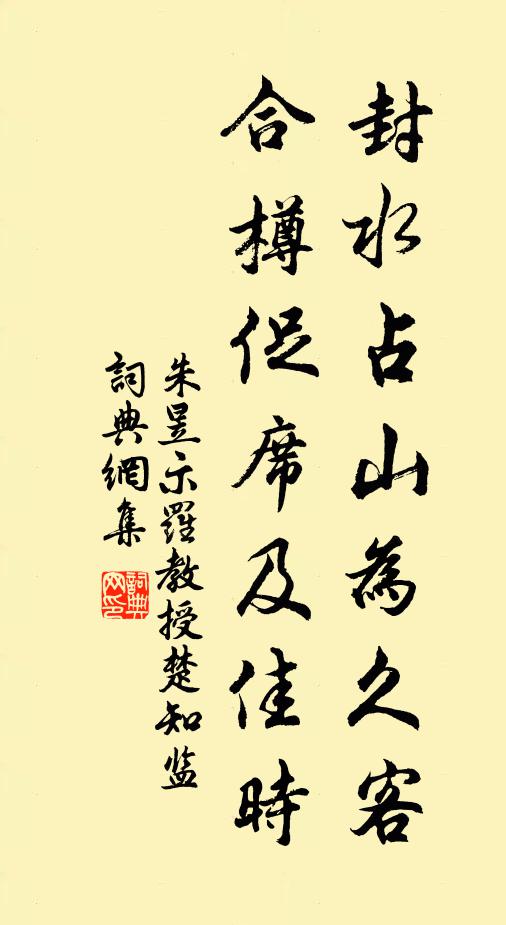 封水占山為久客
合樽促席及佳時
朱昱示羅教授楚知监
詞典網集
詞典
网印